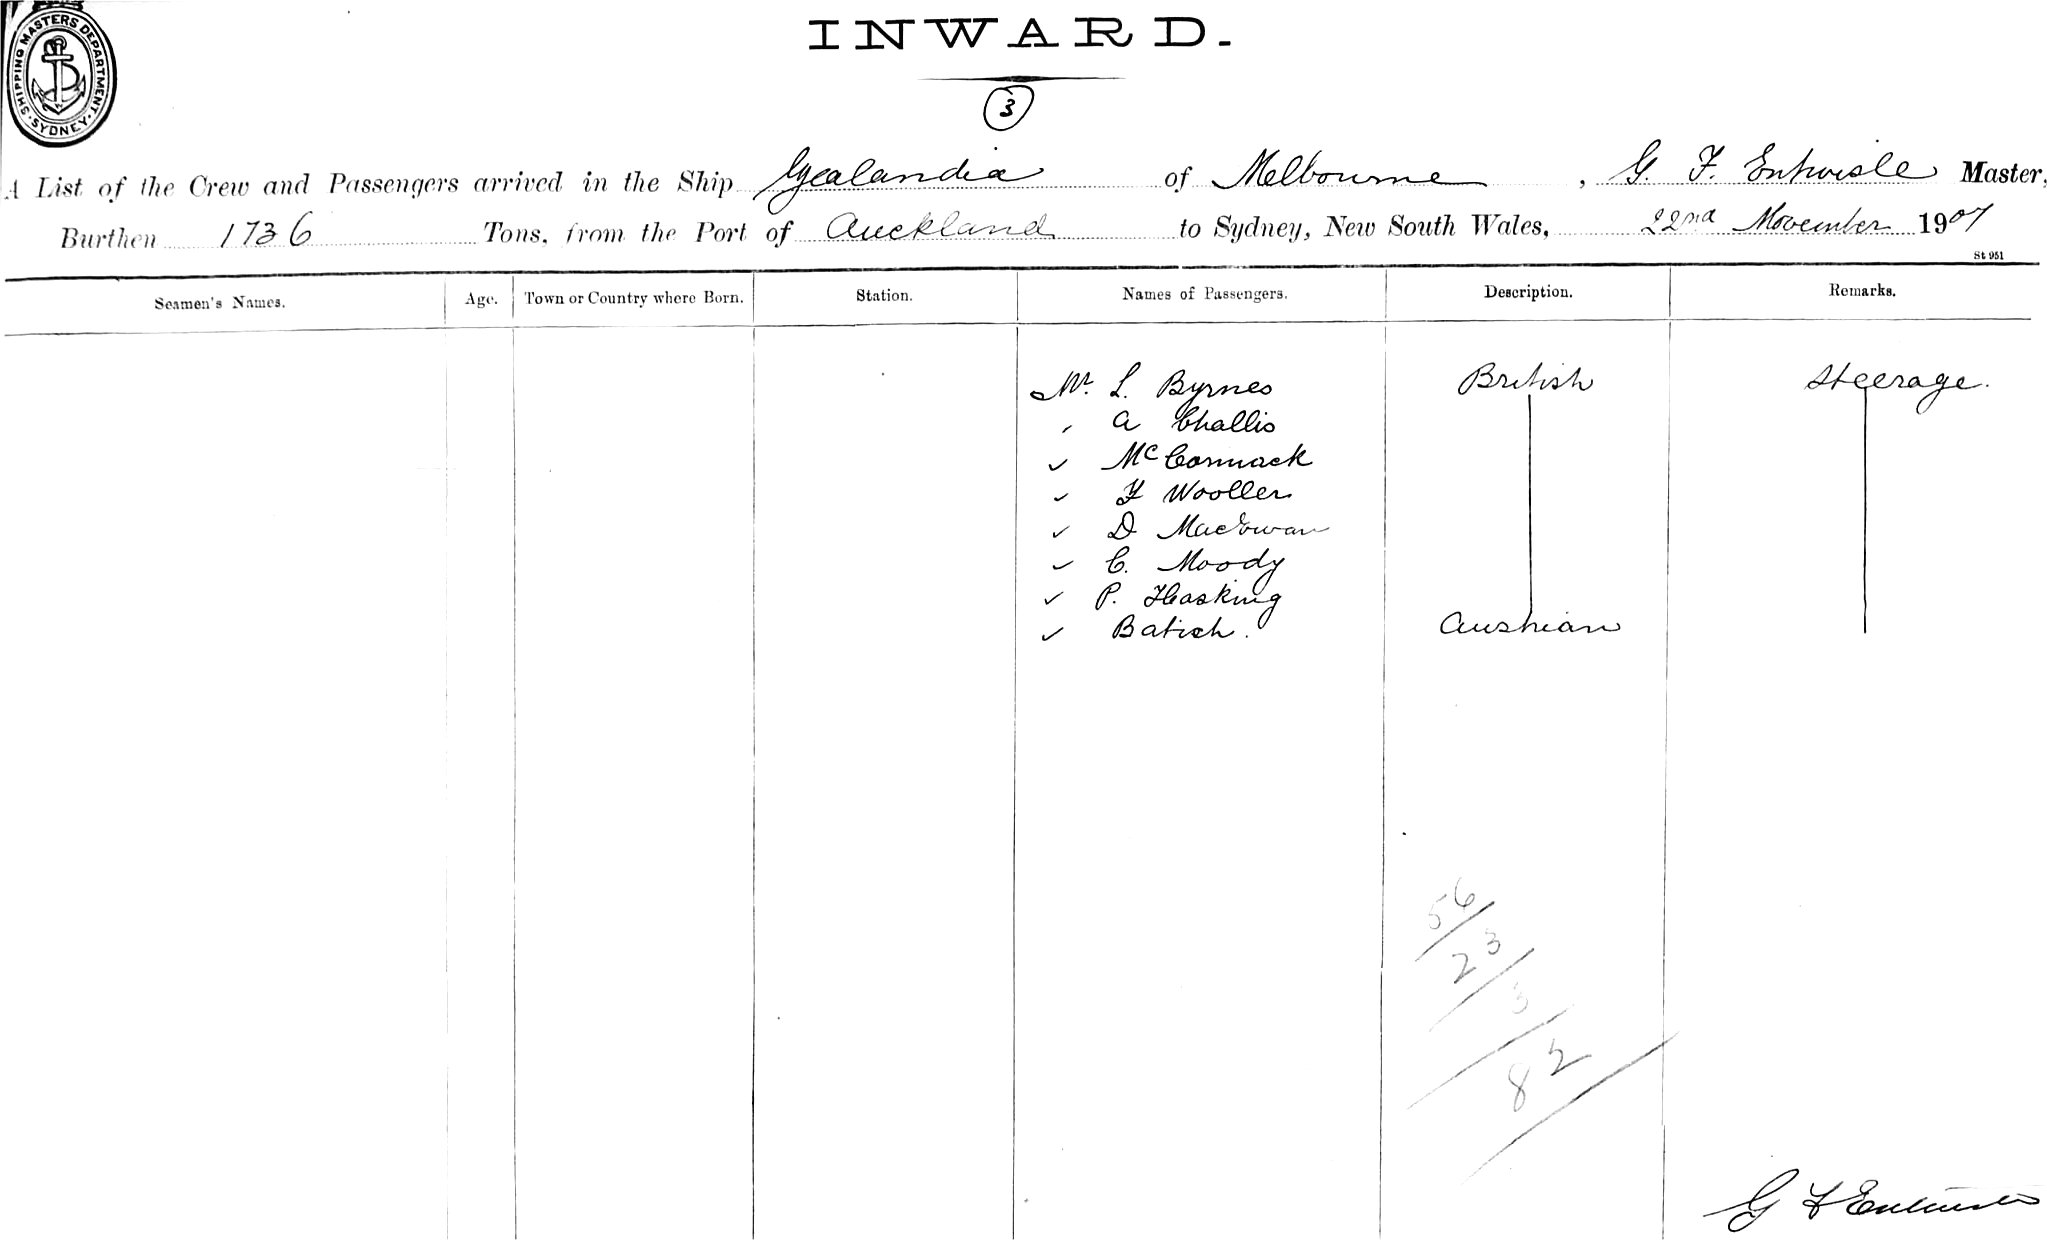 SHIPPING MASTERS DEPARTMENT · SYDNEY ·
INWARD.
3
A List of the Crew and Passengers arrived in the Ship Zealandia of Melbourne, G. F. Entwisle Master,
Burthen 1736 Tons, from the Port of Auckland to Sydney, New South Wales, 22nd November 1907
St 951
Seamen's Names. Age. Town or Country where Born. Station. Names of Passengers. Description. Remarks.
Mr. L. Byrnes British Steerage.
" A Challis
✓ McCormack
✓ F Wooller
✓ D MacEwan
✓ C. Moody
✓ P. Hasking
✓ Batich. Austrian
56
23
3
82
G F Entwisle